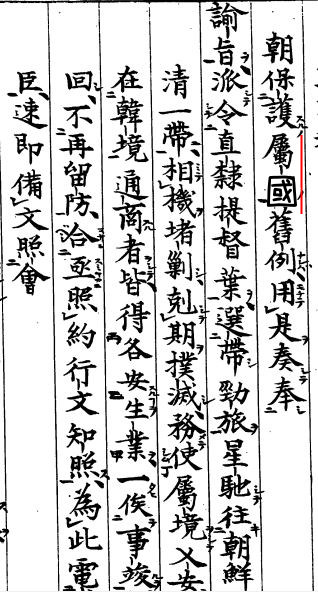 朝保護屬國舊例用是奏奉
諭旨派令直隸提督葉選帶勁旅星馳往朝鮮
清一帶相機堵剿剋期撲滅務使屬境乂安
在韓境通商者皆得各安生業一俟事竣
回不再留防合亟照約行文知照為此電
臣速即備文照會